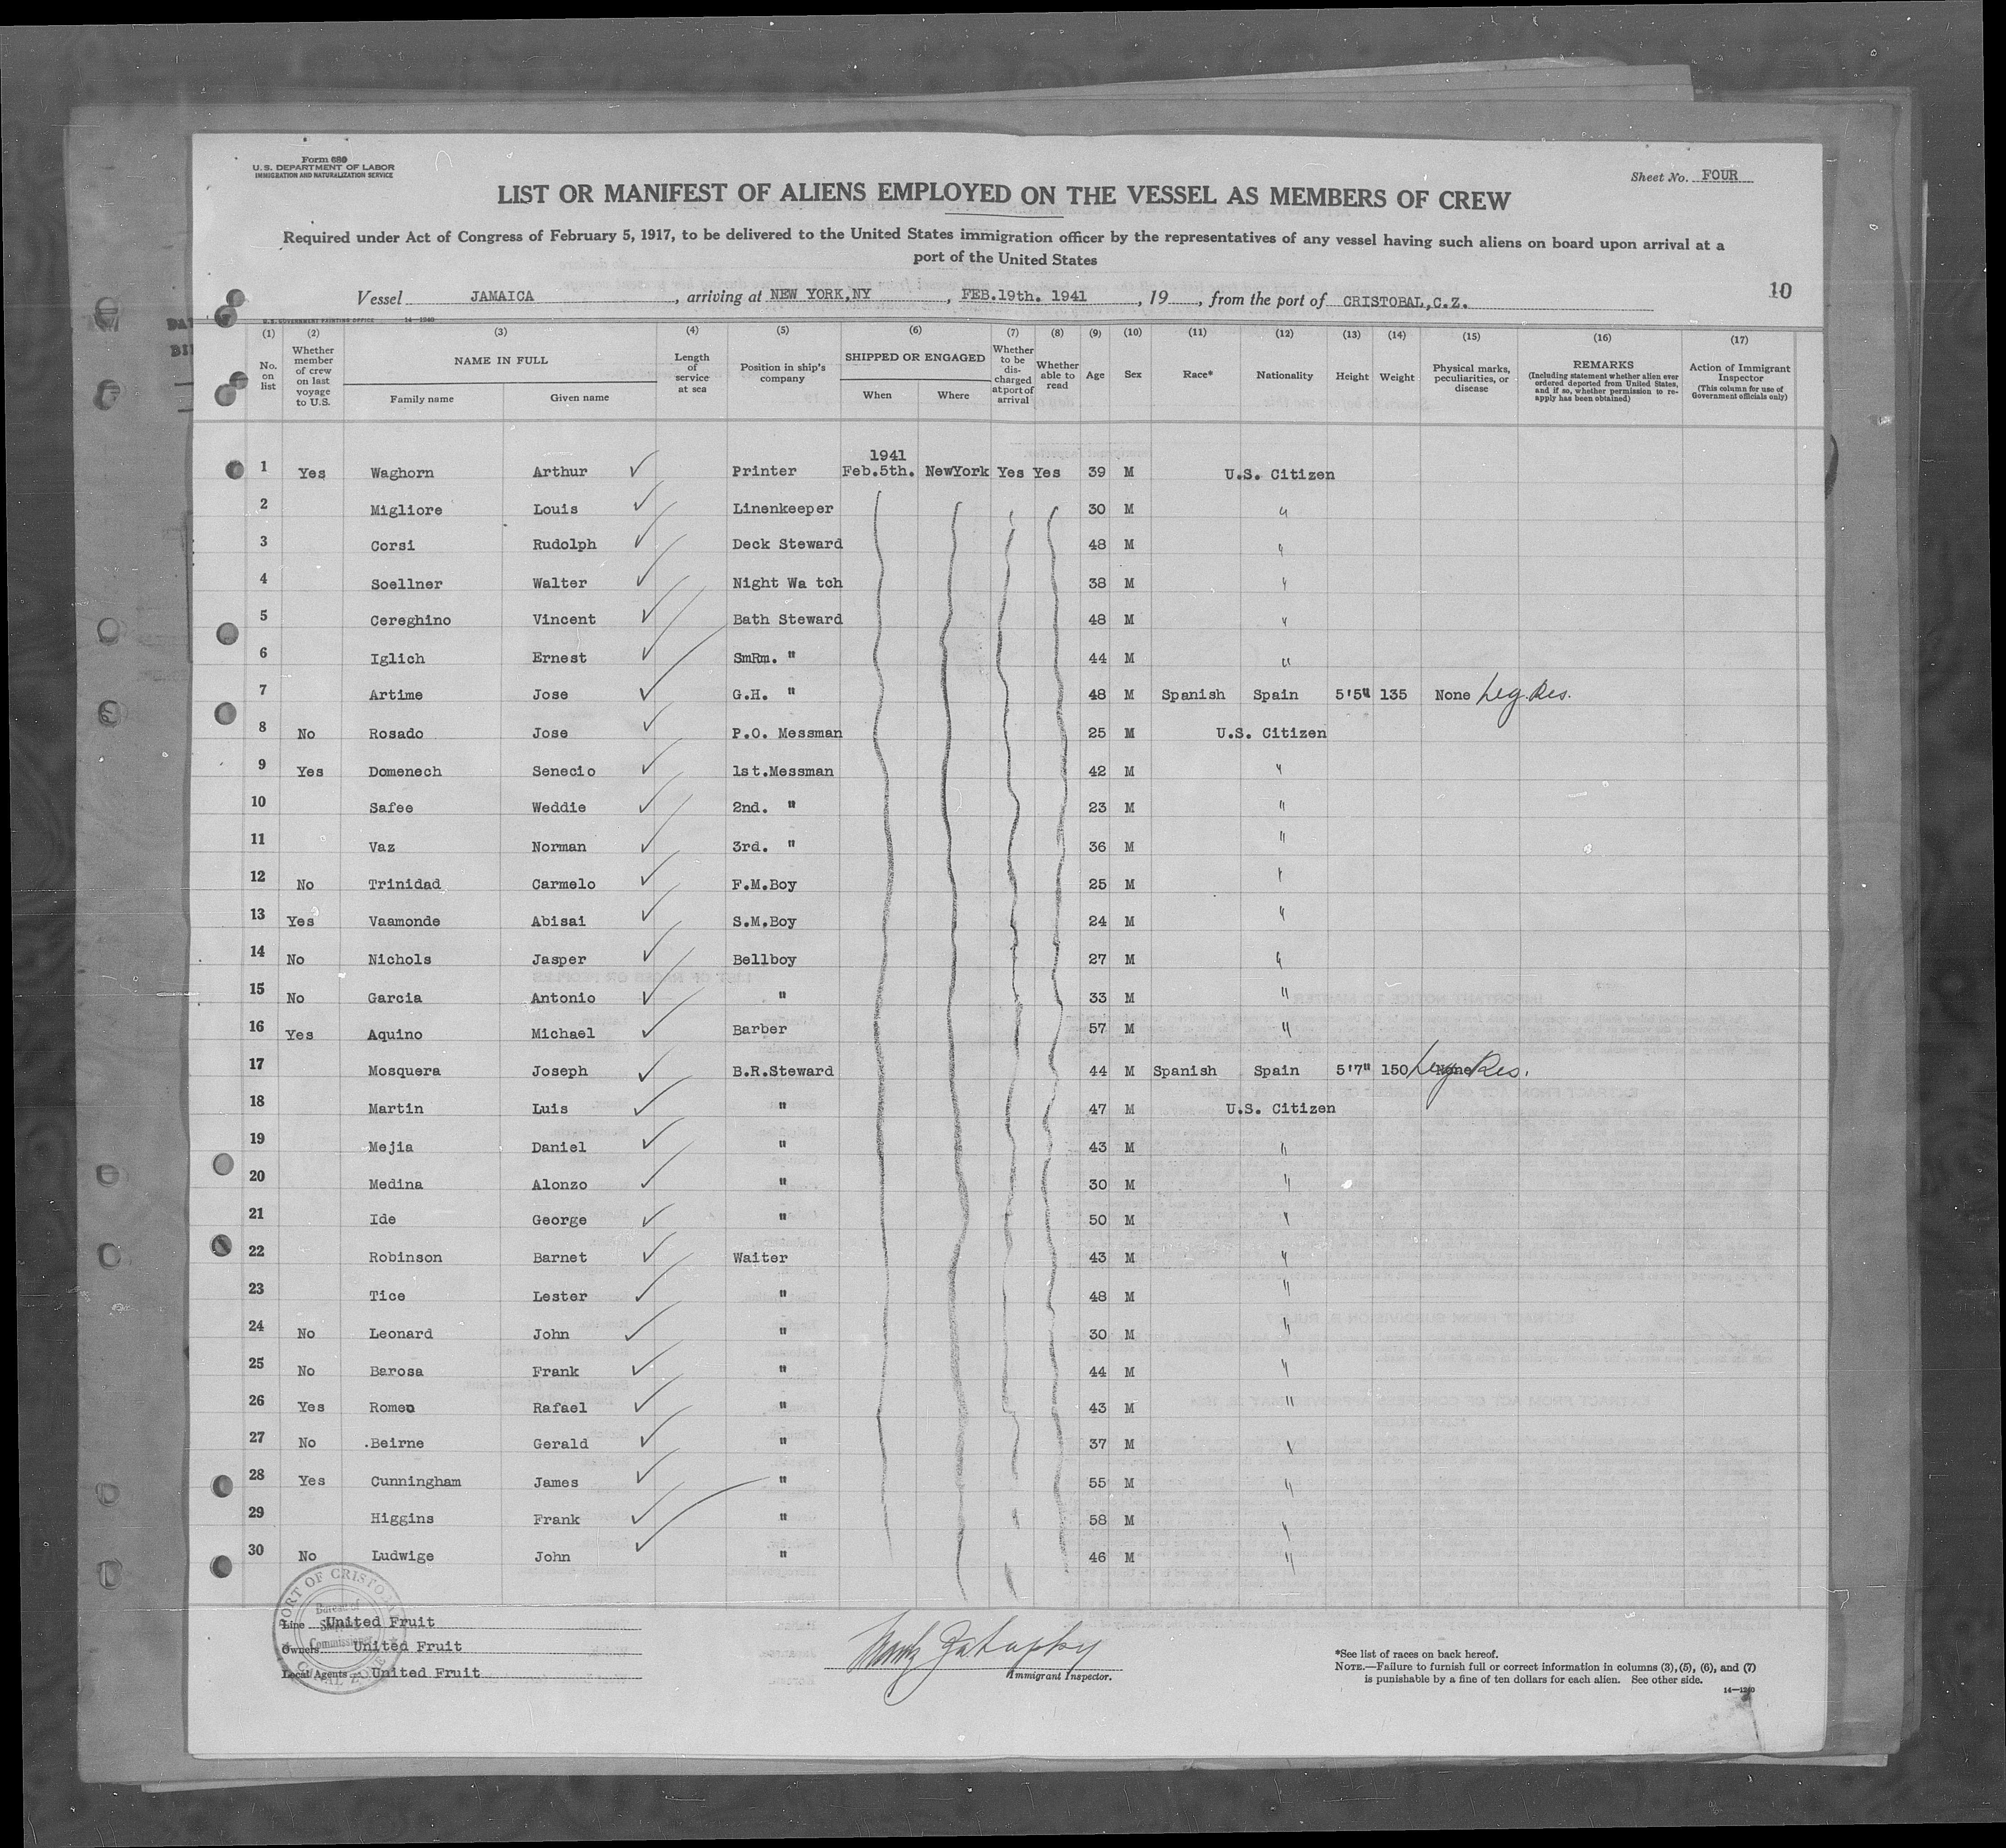 Form 680
U. S. DEPARTMENT OF LABOR
IMMIGRATION AND NATURALIZATION SERVICE
Sheet No. FOUR
LIST OR MANIFEST OF ALIENS EMPLOYED ON THE VESSEL AS MEMBERS OF CREW
Required under Act of Congress of February 5, 1917, to be delivered to the United States immigration officer by the representatives of any vessel having such aliens on board upon arrival at a
port of the United States
Vessel JAMAICA, arriving at NEW YORK,NY, FEB.19th. 1941, 19, from the port of CRISTOBAL,C.Z.
10
U. S. GOVERNMENT PRINTING OFFICE 14—1240
(1) (2) (3) (4) (5) (6) (7) (8) (9) (10) (11) (12) (13) (14) (15) (16) (17)
No. on list
Whether member of crew on last voyage to U.S.
NAME IN FULL
Family name
Given name
Length of service at sea
Position in ship's company
SHIPPED OR ENGAGED
When
Where
Whether to be discharged at port of arrival
Whether able to read
Age
Sex
Race*
Nationality
Height
Weight
Physical marks, peculiarities, or disease
REMARKS
(Including statement whether alien ever ordered deported from United States, and if so, whether permission to re-apply has been obtained)
Action of Immigrant Inspector
(This column for use of Government officials only)
1941
1 Yes Waghorn Arthur ✓ Printer Feb.5th. NewYork Yes Yes 39 M U.S. Citizen
2 Migliore Louis ✓ Linenkeeper 30 M "
3 Corsi Rudolph ✓ Deck Steward 48 M "
4 Soellner Walter ✓ Night Wa tch 38 M "
5 Cereghino Vincent ✓ Bath Steward 48 M "
6 Iglich Ernest ✓ SmRm. " 44 M "
7 Artime Jose ✓ G.H. " 48 M Spanish Spain 5'5" 135 None Leg. Res.
8 No Rosado Jose ✓ P.O. Messman 25 M U.S. Citizen
9 Yes Domenech Senecio ✓ 1st.Messman 42 M "
10 Safee Weddie ✓ 2nd. " 23 M "
11 Vaz Norman ✓ 3rd. " 36 M "
12 No Trinidad Carmelo ✓ F.M.Boy 25 M "
13 Yes Vaamonde Abisai ✓ S.M.Boy 24 M "
14 No Nichols Jasper ✓ Bellboy 27 M "
15 No Garcia Antonio ✓ " 33 M "
16 Yes Aquino Michael ✓ Barber 57 M "
17 Mosquera Joseph ✓ B.R.Steward 44 M Spanish Spain 5'7" 150 None Leg Res.
18 Martin Luis ✓ " 47 M U.S. Citizen
19 Mejia Daniel ✓ " 43 M "
20 Medina Alonzo ✓ " 30 M "
21 Ide George ✓ " 50 M "
22 Robinson Barnet ✓ Waiter 43 M "
23 Tice Lester ✓ " 48 M "
24 No Leonard John ✓ " 30 M "
25 No Barosa Frank ✓ " 44 M "
26 Yes Romeo Rafael ✓ " 43 M "
27 No .Beirne Gerald ✓ " 37 M "
28 Yes Cunningham James ✓ " 55 M "
29 Higgins Frank ✓ " 58 M "
30 No Ludwige John ✓ " 46 M "
PORT OF CRISTOBAL
Bureau of
Commissioner
CANAL ZONE
Line United Fruit
Owners United Fruit
Local Agents United Fruit
Immigrant Inspector.
*See list of races on back hereof.
NOTE.—Failure to furnish full or correct information in columns (3), (5), (6), and (7)
is punishable by a fine of ten dollars for each alien. See other side.
14—1240